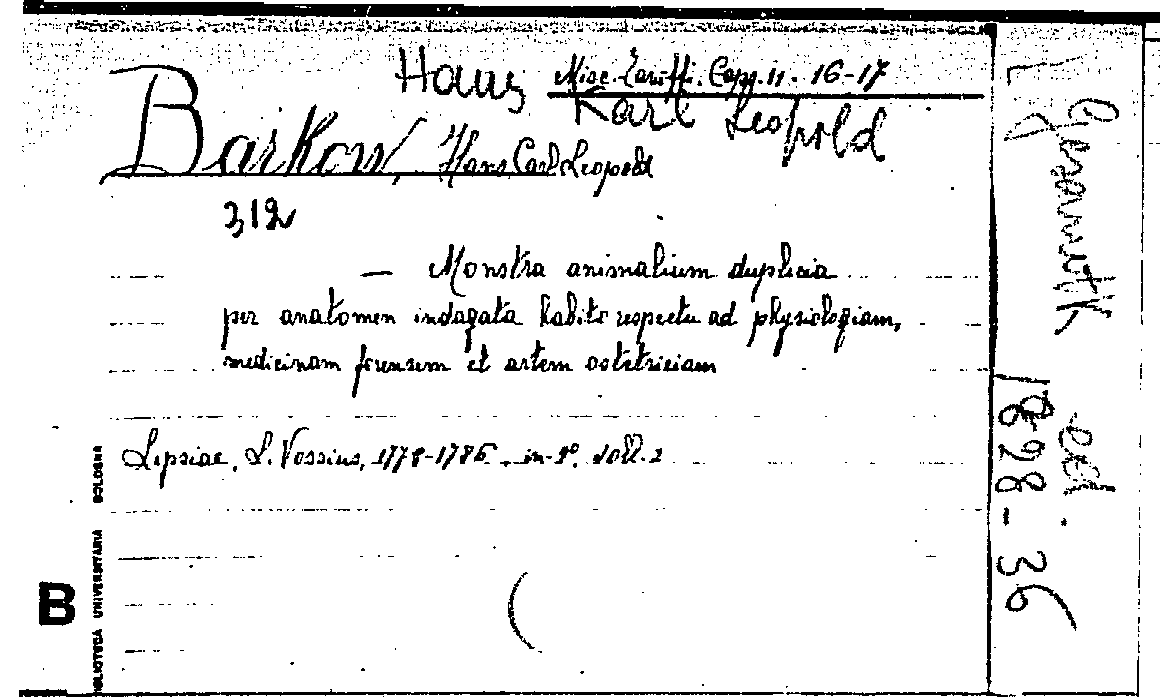 Hans Misc. Zaniffi. Capp. 11 - 16-17
Karl Leopold
Barkow, Hans Carl Leopold
312
— Monstra animalium duplicia
per anatomen indagata habito respectu ad physiologiam,
medicinam forensem et artem ostetriciam
Lipsiae, L. Vossius, 1778-1786, in-4°. voll. 2
(
B
BIBLIOTECA UNIVERSITARIA BOLOGNA
ed.
1828-36